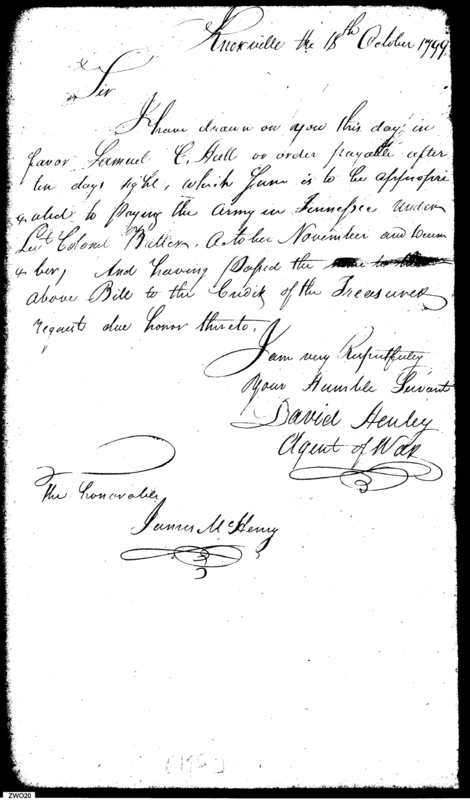 Knoxville the 18th October 1799.
Sir
I have drawn on you this day in
favor Samuel C. Hall or order payable after
ten days sight, which Sum is to be appropri
ated to paying the Army in Tennessee under
Lieut Colonel Butler, October November and Decem
ber, And having passed the
above Bill to the Credit of the Treasurer
request due honor thereto.
I am very Respectfully
Your Humble Servant
David Henley
Agent of War
The Honorable
James McHenry
ZWO20